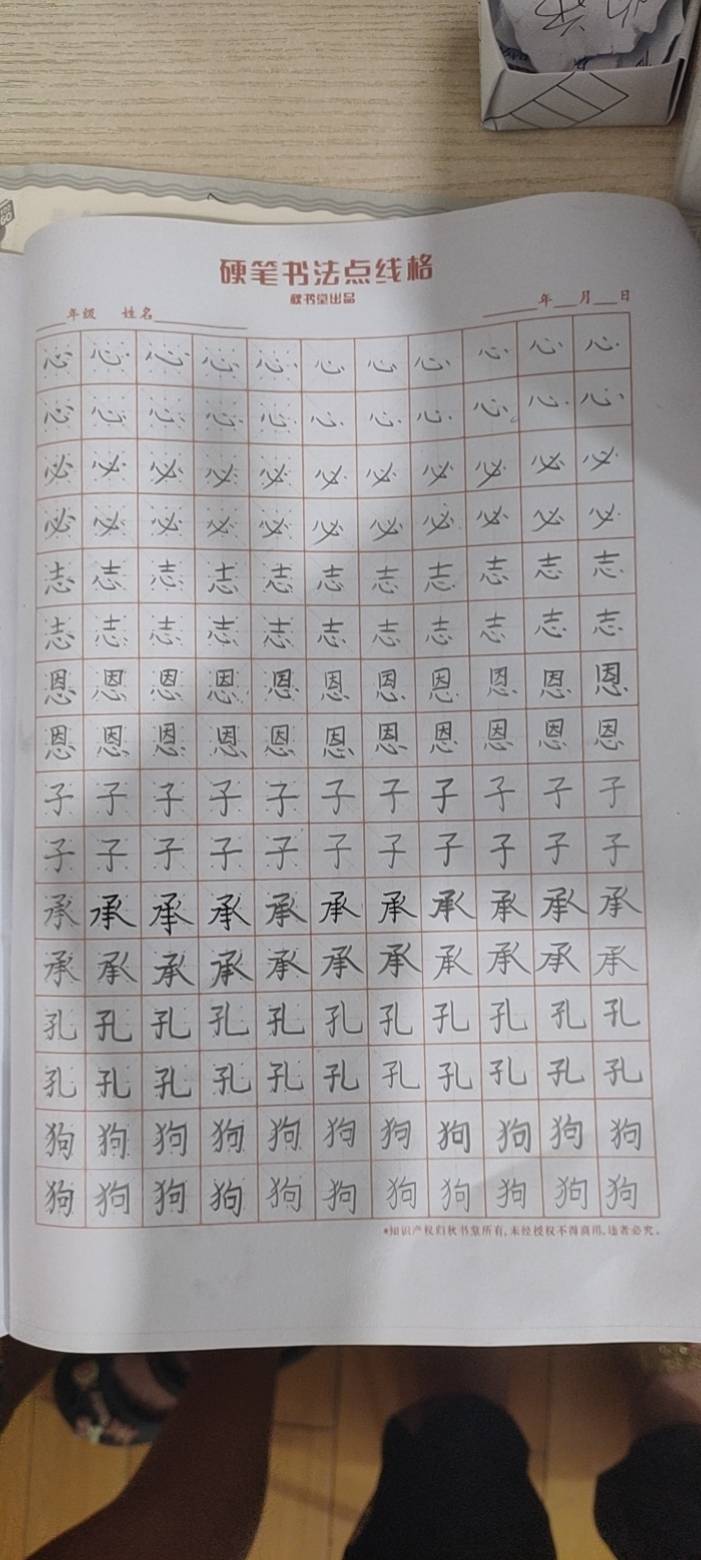 硬笔书法点线格
秋书堂出品
年级 姓名 年 月 日
心心心心心心心心心心心
心心心心心心心心心心心
必必必必必必必必必必必
必必必必必必必必必必必
志志志志志志志志志志志
志志志志志志志志志志志
恩恩恩恩恩恩恩恩恩恩恩
恩恩恩恩恩恩恩恩恩恩恩
子子子子子子子子子子子
子子子子子子子子子子子
承承承承承承承承承承承
承承承承承承承承承承承
孔孔孔孔孔孔孔孔孔孔孔
孔孔孔孔孔孔孔孔孔孔孔
狗狗狗狗狗狗狗狗狗狗狗
狗狗狗狗狗狗狗狗狗狗狗
*知识产权归秋书堂所有,未经授权不得商用,违者必究。